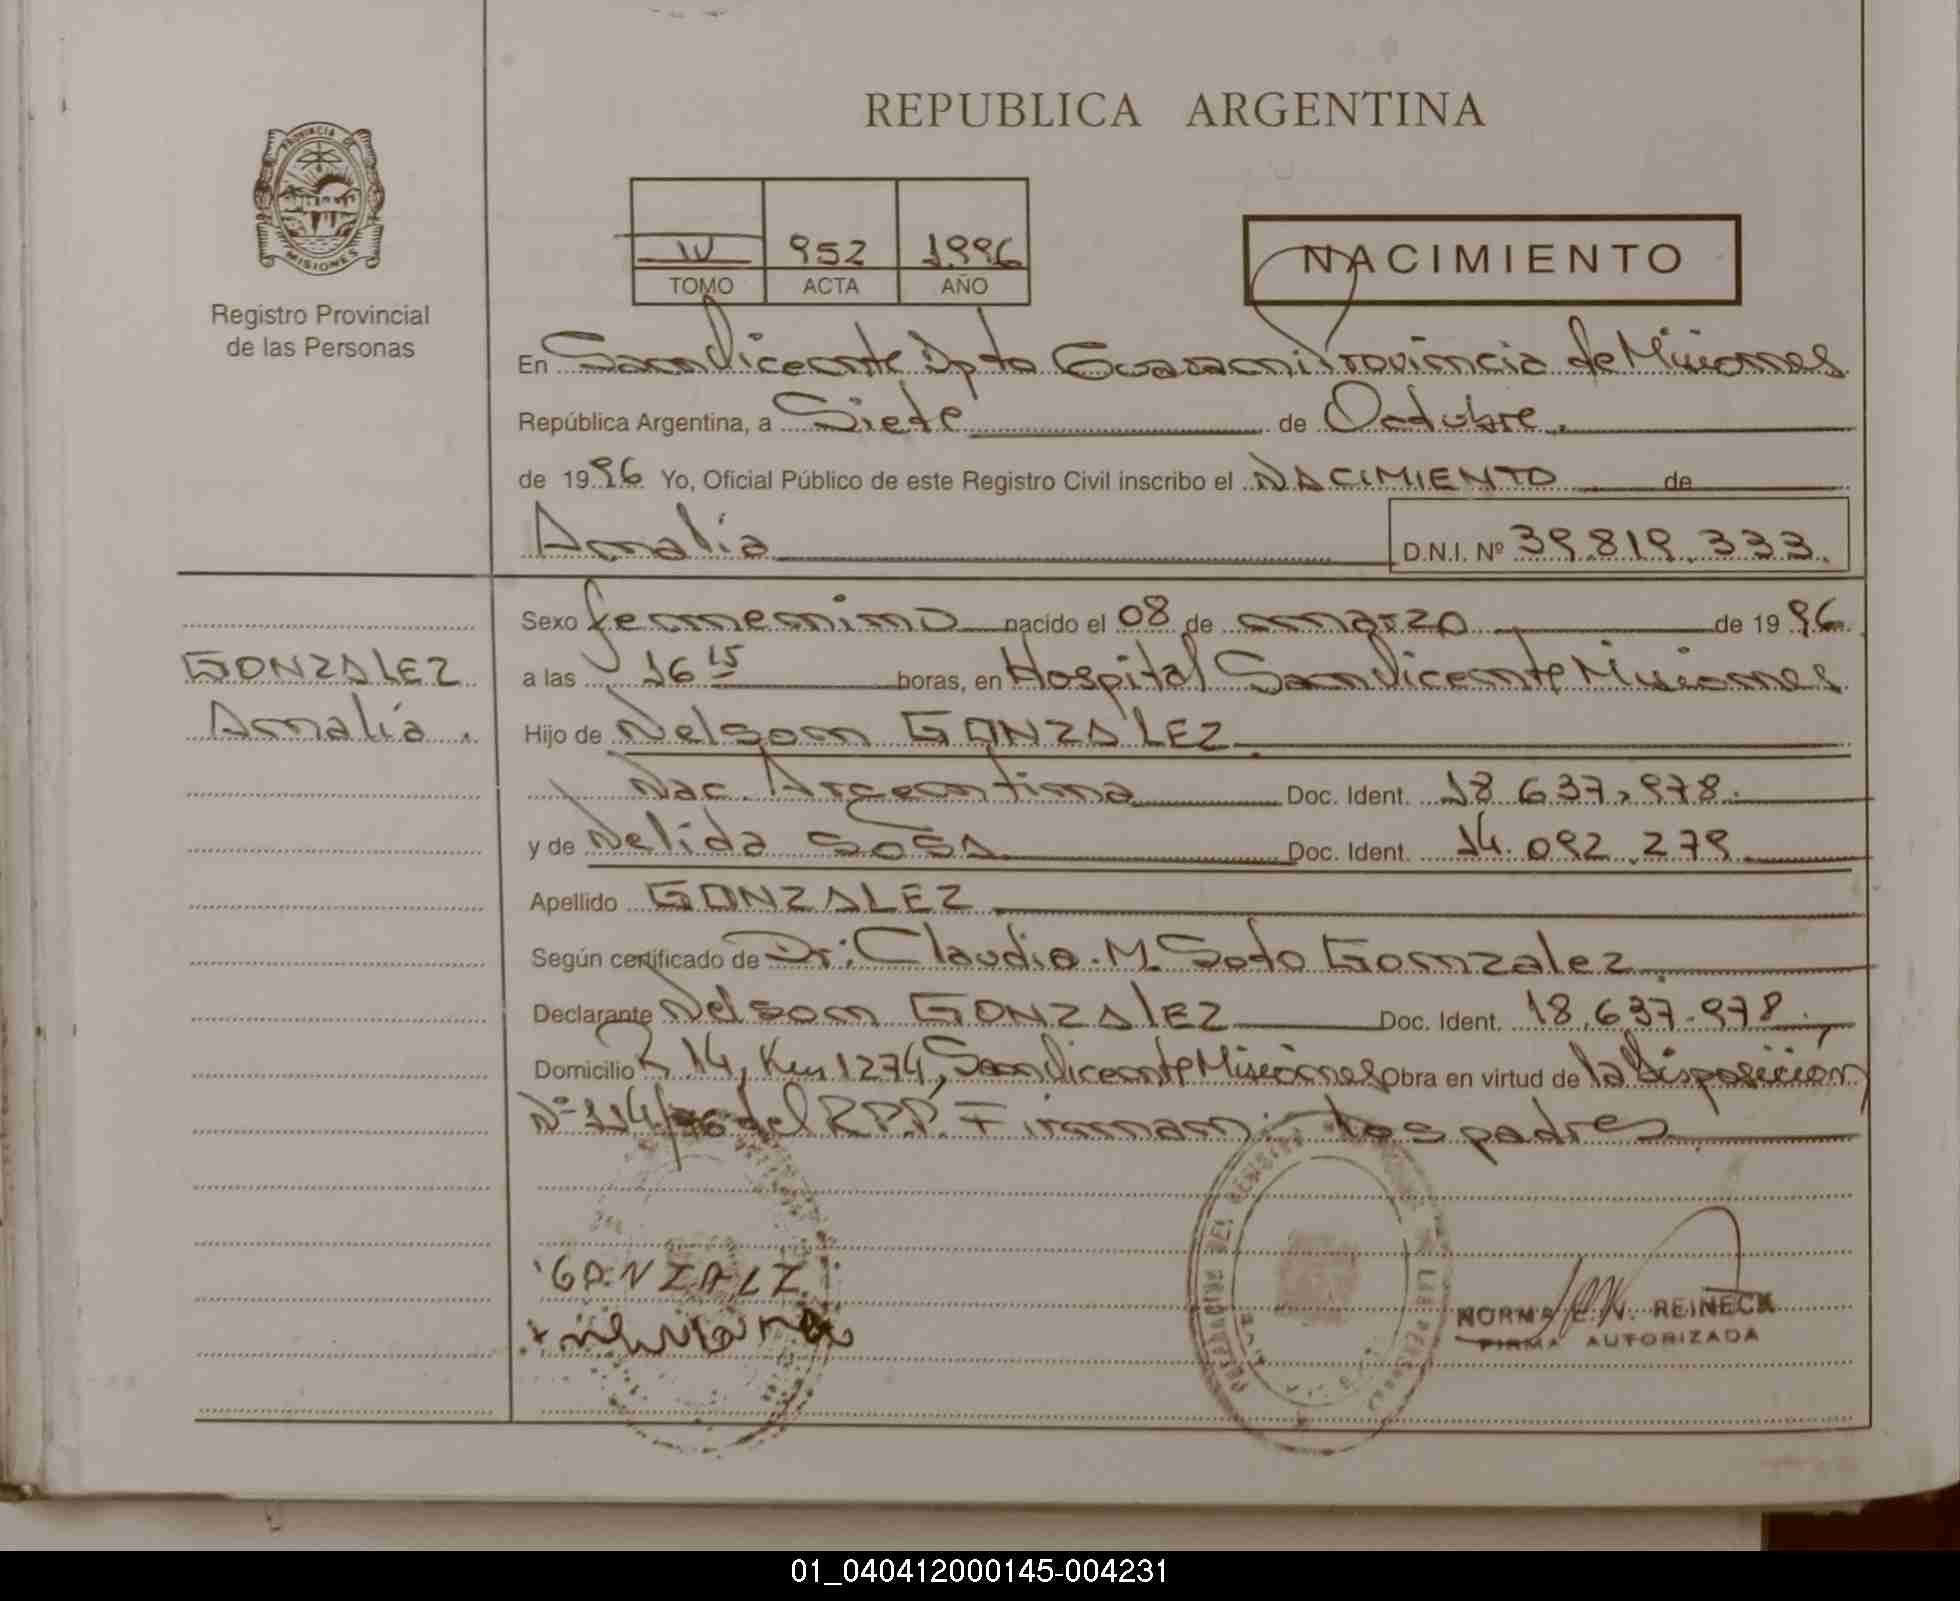 REPUBLICA ARGENTINA
PROVINCIA DE
MISIONES
Registro Provincial
de las Personas
IV 952 1996
TOMO ACTA AÑO
NACIMIENTO
En San Vicente Dpto Guarani Provincia de Misiones
República Argentina, a Siete de Octubre.
de 1996 Yo, Oficial Público de este Registro Civil inscribo el NACIMIENTO de
Amalia D.N.I. Nº 39.819.333.
Sexo femenino nacido el 08 de marzo de 1996.
GONZALEZ
Amalia.
a las 16 15 horas, en Hospital San Vicente Misiones
Hijo de Nelson GONZALEZ
Nac. Argentina Doc. Ident. 18.637.978.
y de Nelida SOSA Doc. Ident. 14.092.279
Apellido GONZALEZ
Según certificado de Dr: Claudio. M. Soto Gonzalez
Declarante Nelson GONZALEZ Doc. Ident. 18.637.978.
Domicilio R 14, Km 1274, San Vicente Misiones Obra en virtud de la Disposición
Nº 114/96 del R.P.P. Firman: los padres
GANZALZ
NORMA E. N. REINECK
FIRMA AUTORIZADA
01_040412000145-004231